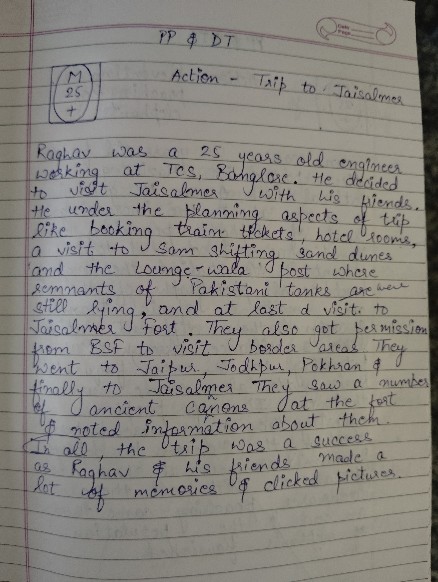 PP & DT
Date
Page
M
25
+
Action - Trip to Jaisalmer
Raghav was a 25 years old engineer
working at TCS, Banglore. He decided
to visit Jaisalmer with his friends.
He under the planning aspects of trip
like booking train tickets, hotel rooms,
a visit to Sam shifting sand dunes
and the Lounge-wala post where
remnants of Pakistani tanks are were
still lying, and at last a visit to
Jaisalmer Fort. They also got permission
from BSF to visit border areas They
went to Jaipur, Jodhpur, Pokhran &
finally to Jaisalmer They saw a number
of ancient canons at the fort
& noted information about them.
In all, the trip was a success
as Raghav & his friends made a
lot of memories & clicked pictures.